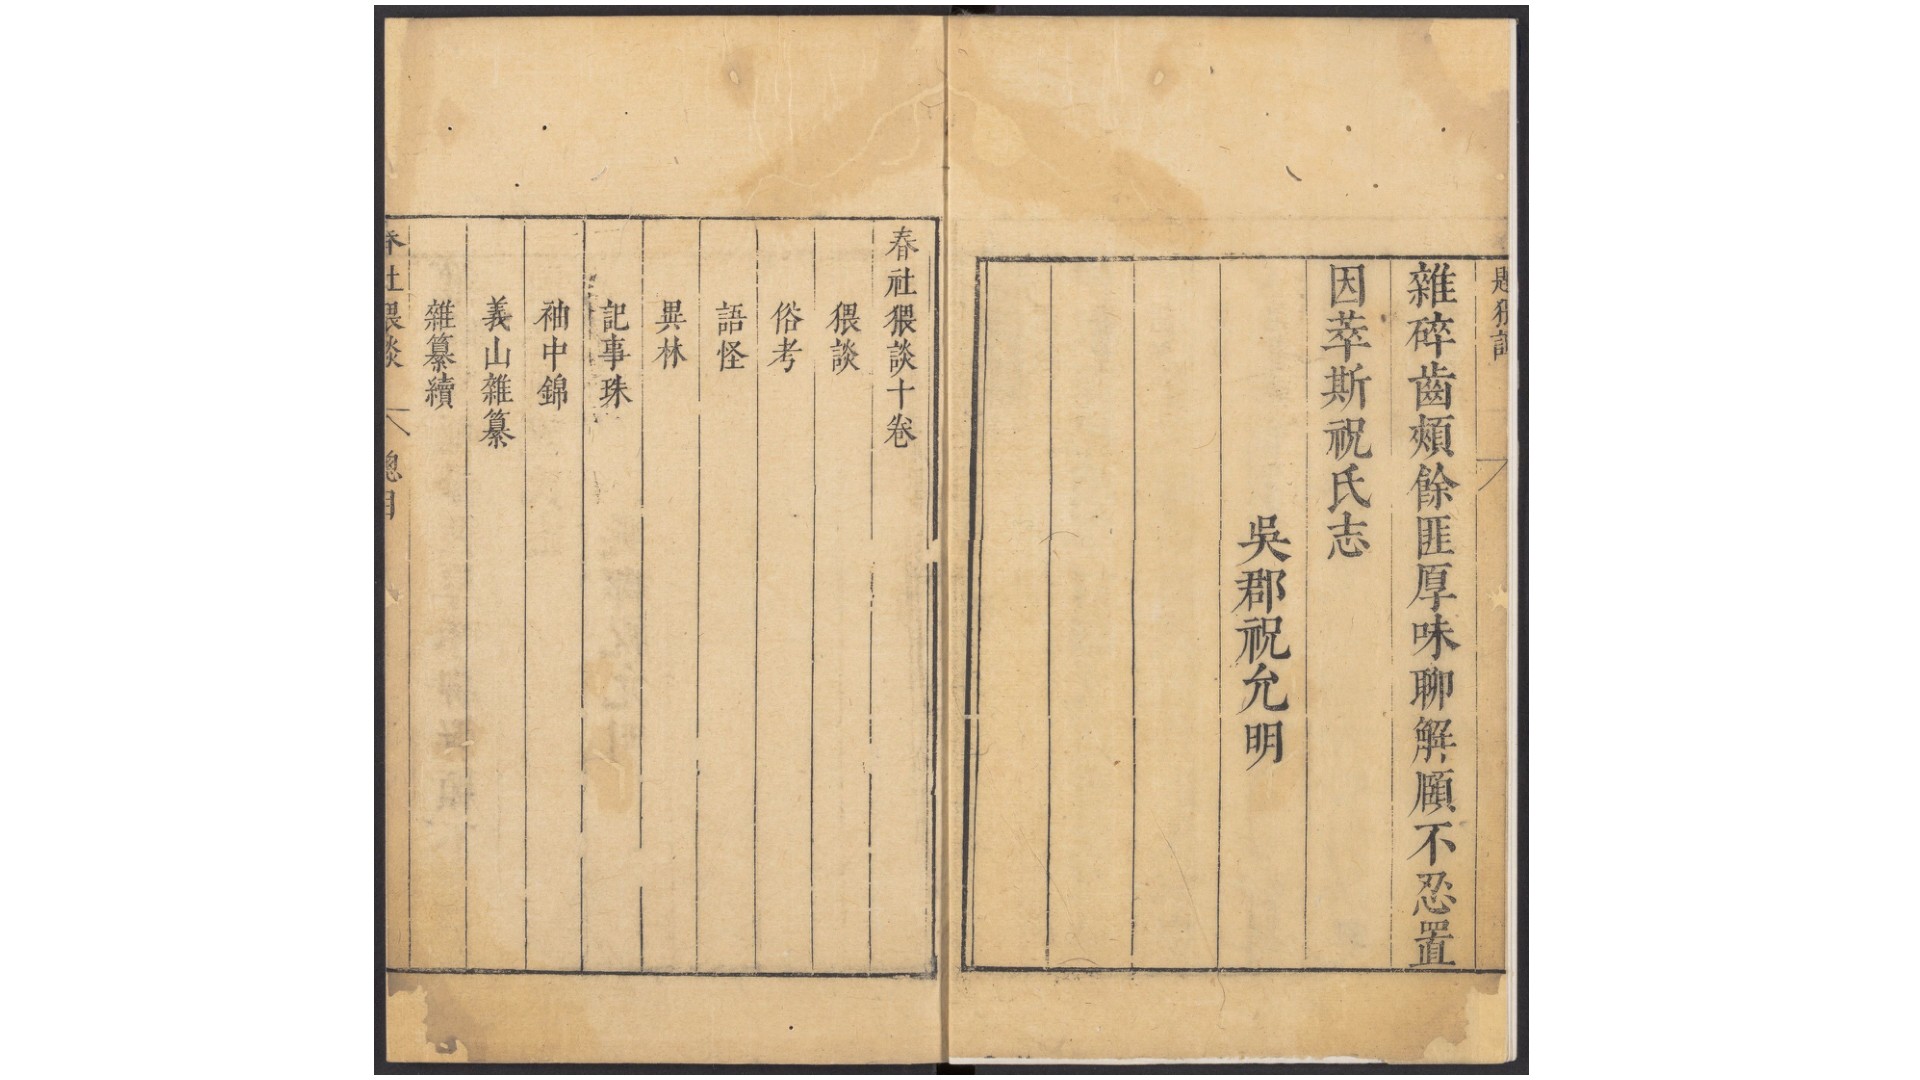 題猥談
雜碎齒頰餘匪厚味聊解頤不忍置
因萃斯祝氏志
吳郡祝允明
春社猥談十卷
猥談
俗考
語怪
異林
記事珠
袖中錦
義山雜纂
雜纂續
春社猥談 總目